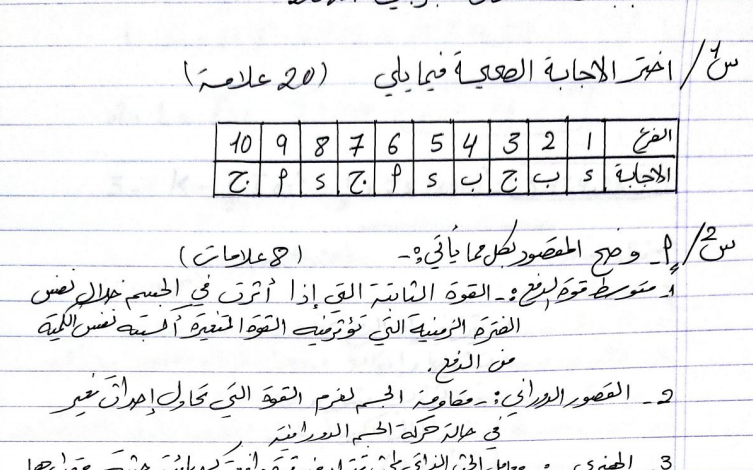 س1/ اختر الاجابة الصحيحة فيما يلي (20 علامة)
الفرع 1 2 3 4 5 6 7 8 9 10
الاجابة د ب ج ب د أ ج د أ ج
س2/ أ- وضح المقصود بكل مما يأتي:- (8 علامات)
1- متوسط قوة الدفع:- القوة الثابتة التي إذا أثرت في الجسم خلال نفس
الفترة الزمنية التي تؤثر فيه القوة المتغيرة أكسبته نفس الكمية
من الدفع.
2- القصور الدوراني:- مقاومة الجسم لعزم القوة التي تحاول إحداث تغير
في حالة حركة الجسم الدورانية
3 الهنري